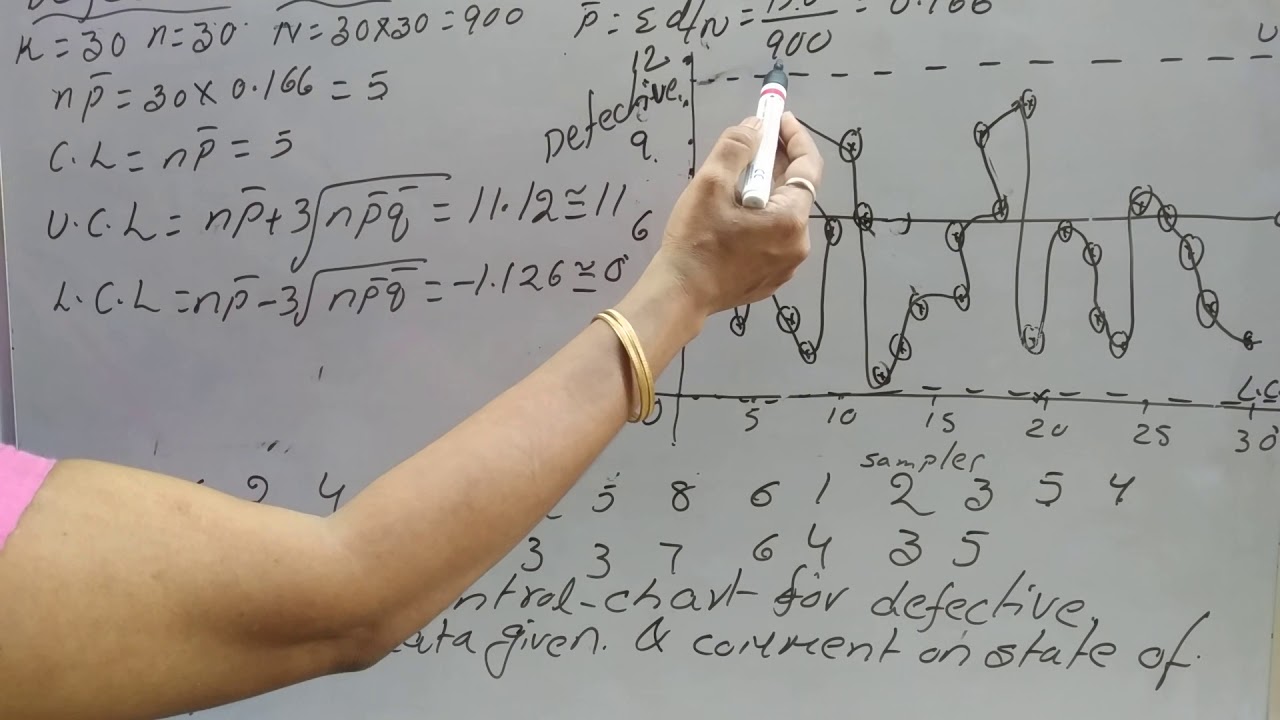 K = 30 n = 30 N = 30×30 = 900
p̄ = Σd/N = /900 = 0.166
n p̄ = 30 × 0.166 = 5
C.L = n p̄ = 5
U.C.L = n p̄ + 3√n p̄ q̄ = 11.12 ≅ 11
L.C.L = n p̄ - 3√n p̄ q̄ = -1.126 ≅ 0
Defective
12
9
6
U
L.C.
5 10 15 20 25 30
sampler
2 4 5 8 6 1 2 3 5 4
3 3 7 6 4 3 5
ntrol-chart for defective
ata given. & comment on state of